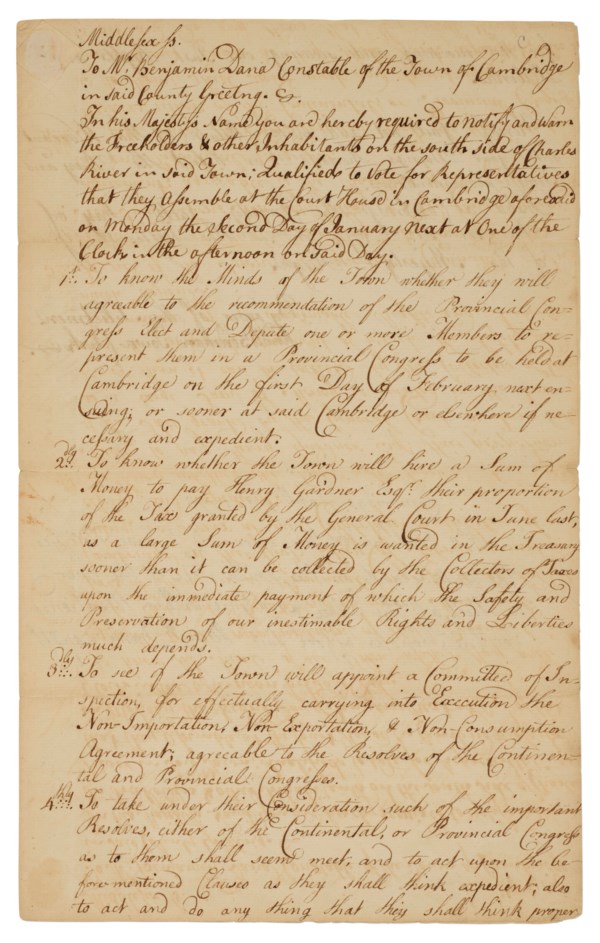 Middlesex ss.
To Mr. Benjamin Dana Constable of the Town of Cambridge
in said County Greetng. &c.
In his Majestys Name you are hereby required to notify and warn
the Freeholders & other Inhabitants on the south side of Charles
River in said Town; Qualified to vote for Representatives
that they Assemble at the Court House in Cambridge aforesaid
on Monday the second Day of January next at One of the
Clock in the afternoon on said Day.
1st. To know the Minds of the Town whether they will
agreeable to the recommendation of the Provincial Con=
gress Elect and Depute one or more Members to re=
present them in a Provincial Congress to be held at
Cambridge on the first Day of February next en=
suing; or sooner at said Cambridge or elsewhere if ne=
cessary and expedient.
2dly. To know whether the Town will hire a Sum of
Money to pay Henry Gardner Esqr. their proportion
of the Tax granted by the General Court in June last,
as a large Sum of Money is wanted in the Treasury
sooner than it can be collected by the Collectors of Taxes
upon the immediate payment of which the Safety and
Preservation of our inestimable Rights and Liberties
much depends.
3dly. To see of the Town will appoint a Committed of In=
spection, for effectually carrying into Execution the
Non-Importation, Non-Exportation, & Non-Consumption
Agreement; agreeable to the Resolves of the Continen=
tal and Provincial Congresses.
4thly. To take under their Consideration such of the important
Resolves, either of the Continental, or Provincial Congress
as to them shall seem meet, and to act upon the be=
fore mentioned Clauses as they shall think expedient; also
to act and do any thing that they shall think proper